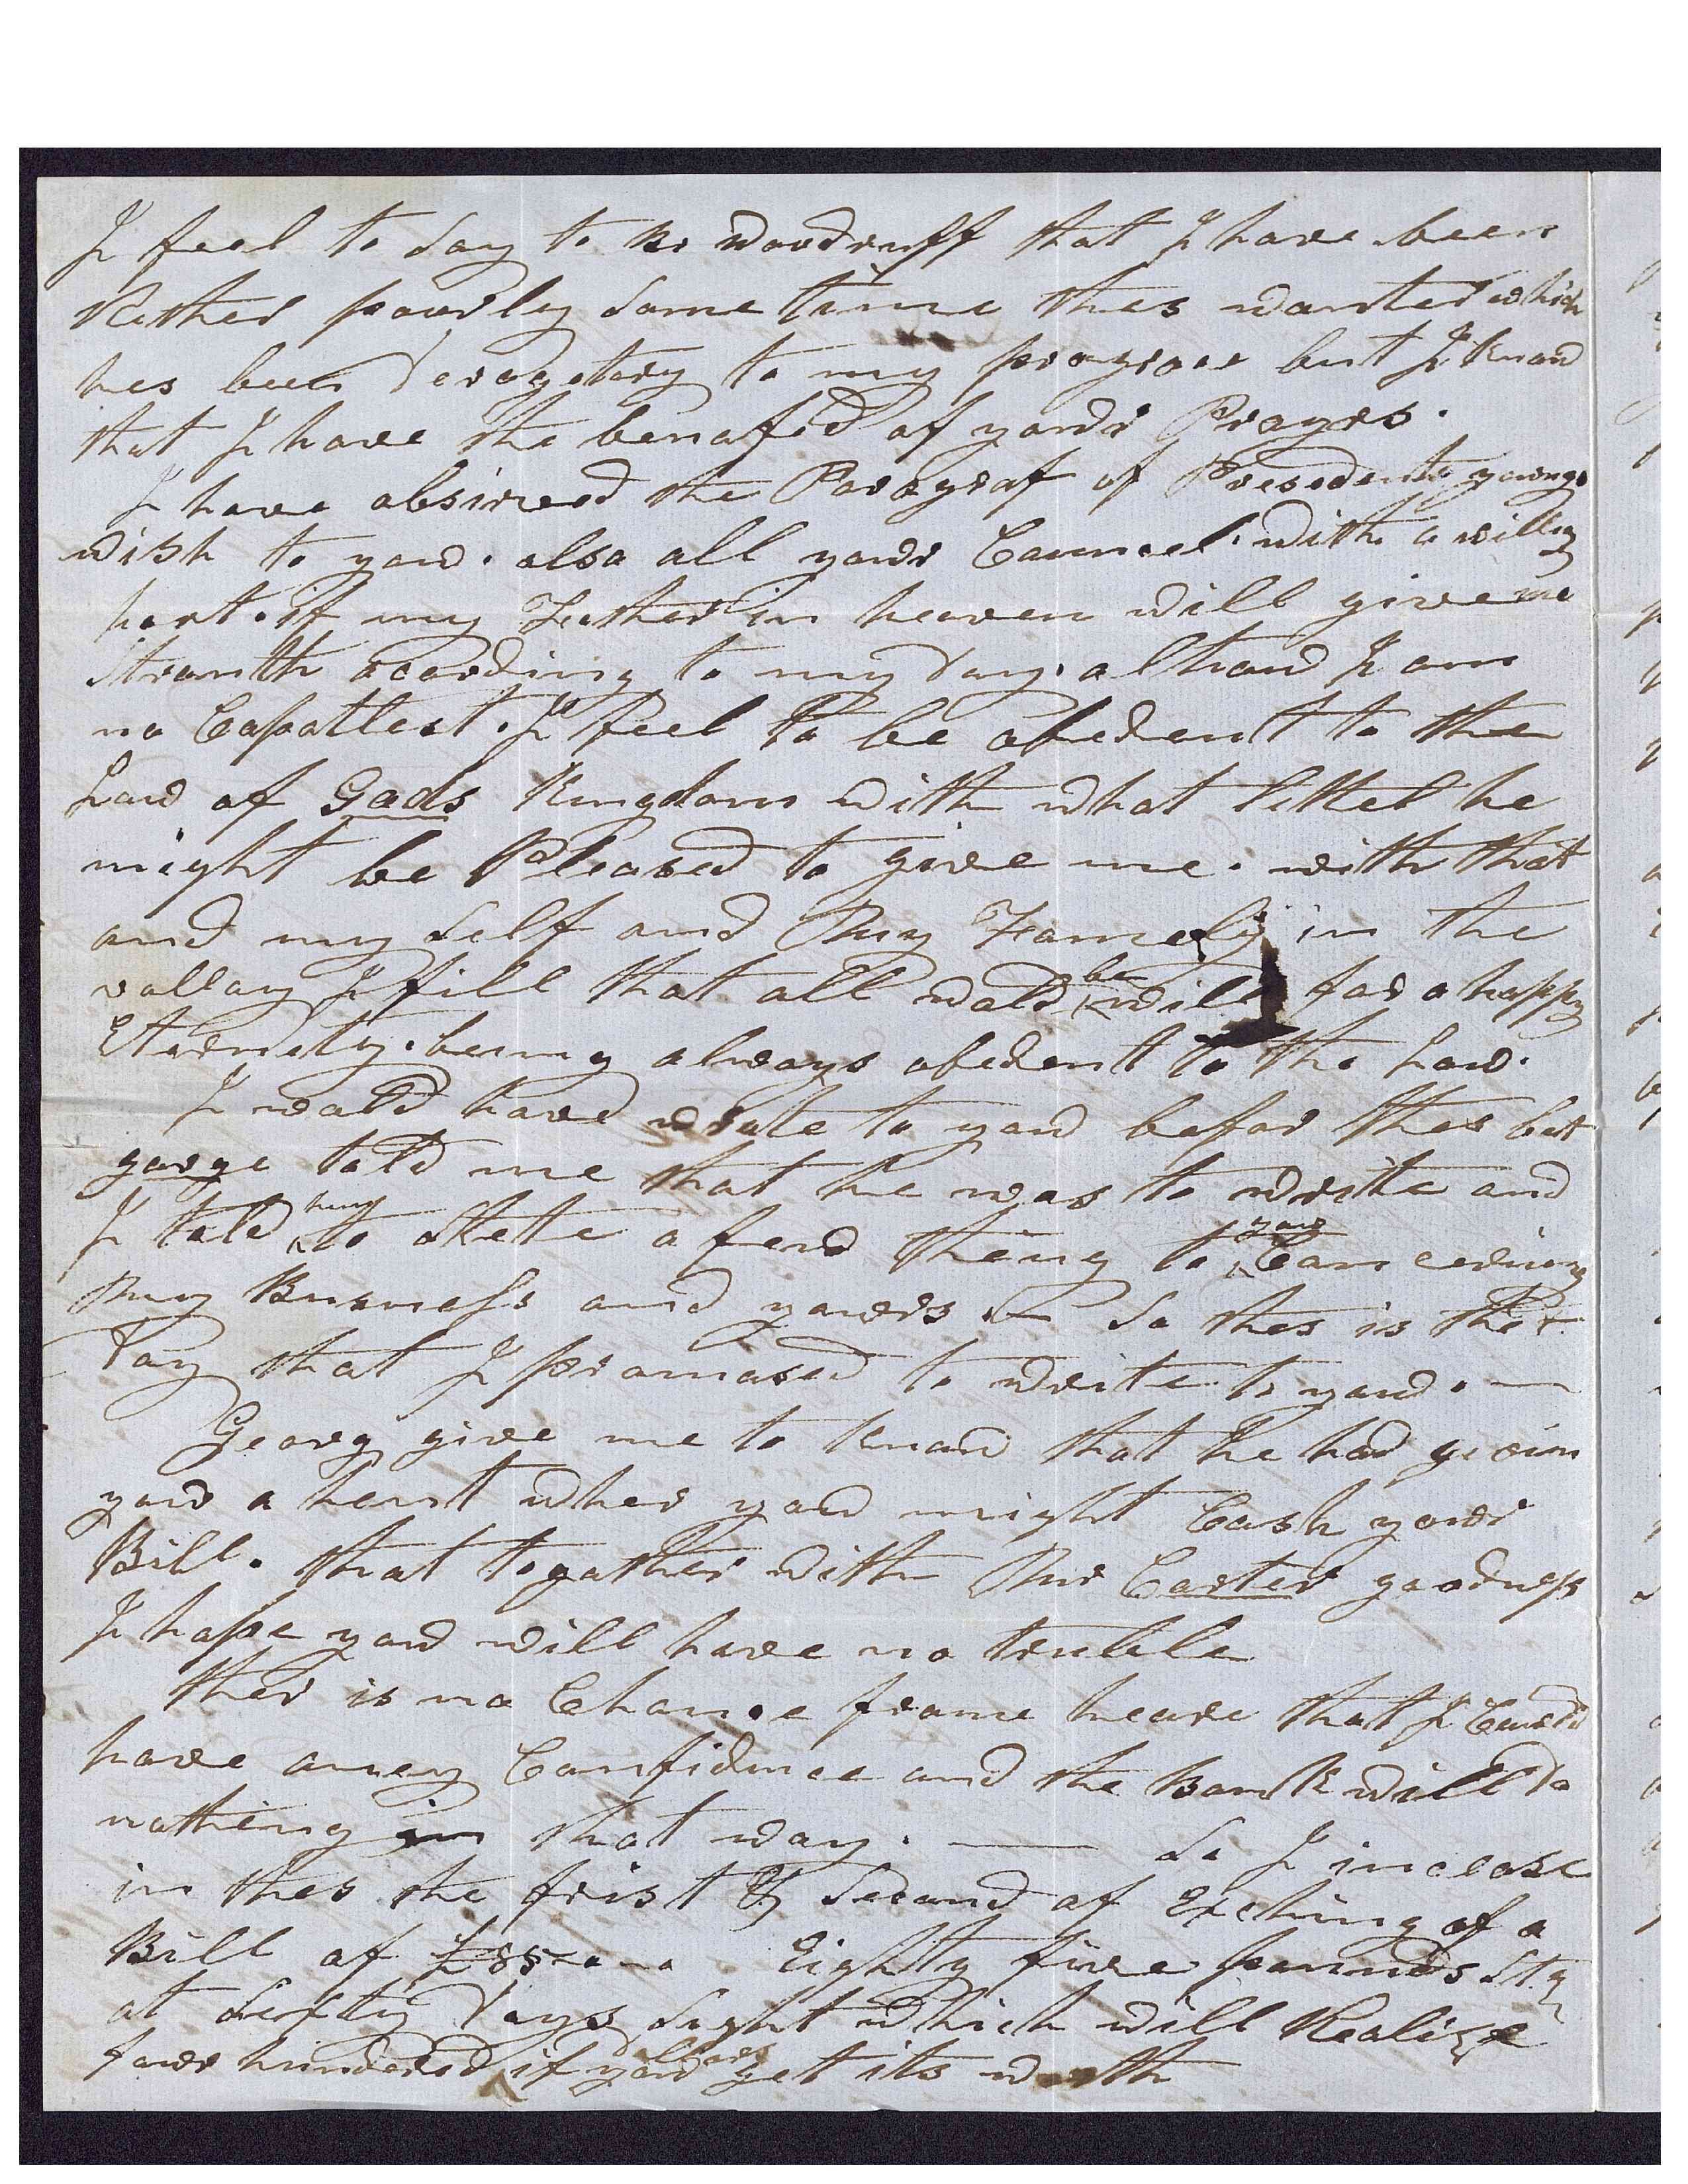 I feel to Say to Br Woodruff that I have been
Rether pourly Some time thes wanter which
hes been Derogetory to my progross but I Know
that I have the benafid of yowr Prayrs.
I have absirved the Paragraf of Presedents yowngs
wish to yow. also all yowr Councel. with a willing
hart. if my Father in heaven will give me
Stranth acording to my Day. althow I am
no Capatlest. I feel to be abedent to the
Law of Gads Kingdom with what littel he
might be Pleased to give me. with that
and my Self and My Famely in the
vallay I fill that all wold be will for a happy
Eternety. being always abedent to the Law.
I wold have wrote to yow befor thes but
garge told me that he was to write and
I told him to state a few theing to yow Concerning
My Busness and yowrs. — So thes is the
Day that I promased to write to yow. —
Georg give me to Know that he had givin
yow a hent wher yow might Cash yowr
Bill. that togather with Mr Carter goodness
I hope yow will have no truble
ther is no Chance frome heare that I Could
have aney Confidence and the Bank will Do
nathing in that way. — So I inclose
in thes the first & Second of Exching of a
Bill of £85 Eighty five pounds Stg
at Sixty Days Sight which will Realize
fowr hundered Dollars if yow get its worth